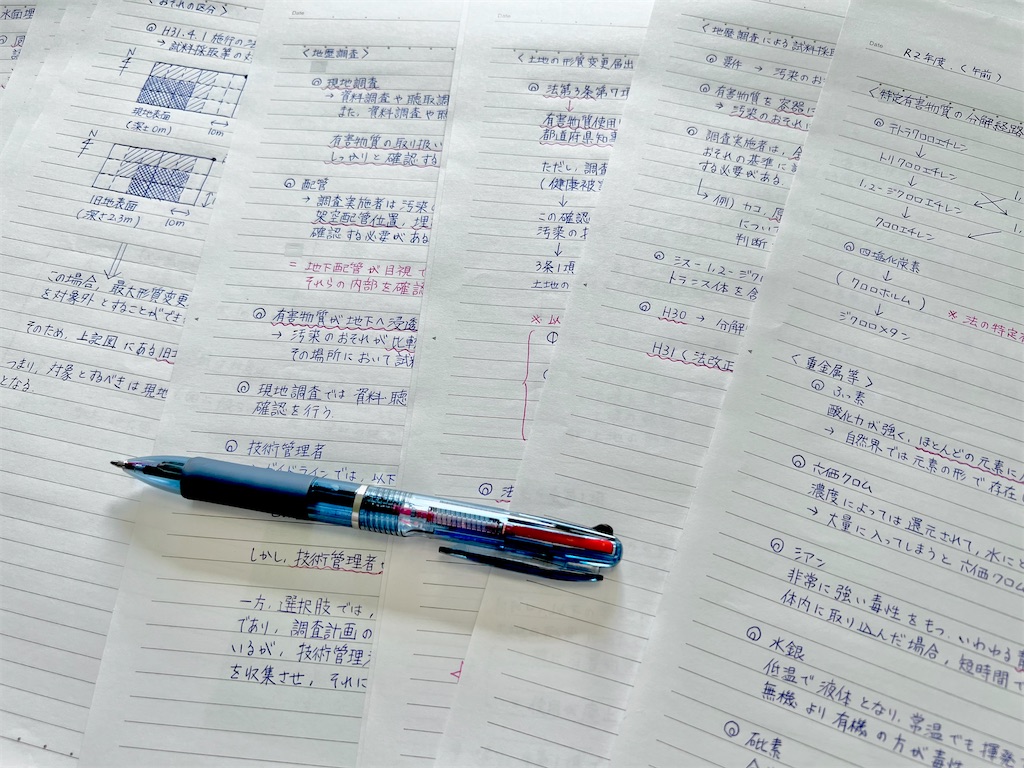 水面埋
おそれの区分〉
H31.4.1 施行の法
→ 試料採取等の対
N
現地表面
(深さ0m)
10m
N
旧地表面
(深さ2.3m)
10m
この場合、最大形質変更
を対象外とすることができ
そのため、上記図にある旧
つまり、対象とするべきは現地
となる
Date
〈地歴調査〉
現地調査
→ 資料調査や聴取調
また、資料調査や聴
有害物質の取り扱い
しっかりと確認する
配管
→ 調査実施者は汚染
架空配管位置、埋
確認する必要があ
= 地下配管が目視で
それらの内部を確認
有害物質が地下へ浸透
→ 汚染のおそれが比較
その場所において試
現地調査では資料・聴
確認を行う
技術管理者
ガイドラインでは、以下
しかし、技術管理者
一方、選択肢では、
であり、調査計画の
いるが、技術管理
を収集させ、それに
Date
〈土地の形質変更届出
法第3条第7項
↓
有害物質使用
都道府県知事
ただし、調査
(健康被
↓
この確認
汚染の
↓
3条1項
土地の
※ 以
①
法
〈地歴調査による試料採取
要件 → 汚染のお
有害物質を容器に
→ 汚染のおそれ
調査実施者は、
おそれの基準に
する必要がある
例) カコ、
につい
判断
シス-1,2-ジク
トランス体を含
H30 → 分解
H31 (法改正
Date
R2年度.(午前)
〈特定有害物質の分解経路
テトラクロロエチレン
↓
トリクロロエチレン
↓
1,2-ジクロロエチレン
↓
クロロエチレン
四塩化炭素
↓
(クロロホルム)
↓
ジクロロメタン
※ 法の特定有
〈重金属等〉
ふっ素
酸化力が強く、ほとんどの元素に
→ 自然界では元素の形で存在
六価クロム
濃度によっては還元されて、水に
→ 大量に入ってしまうと六価クロム
シアン
非常に強い毒性をもつ、いわゆる
体内に取り込んだ場合、短時間で
水銀
低温で液体となり、常温でも揮発
無機より有機の方が毒性
砒素